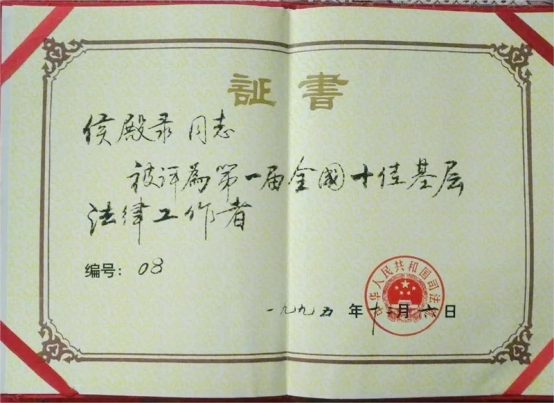 証書
侯殿录 同志
被评為第一届全國十佳基层
法律工作者
编号：08
一九九五年十二月六日
中华人民共和国司法部